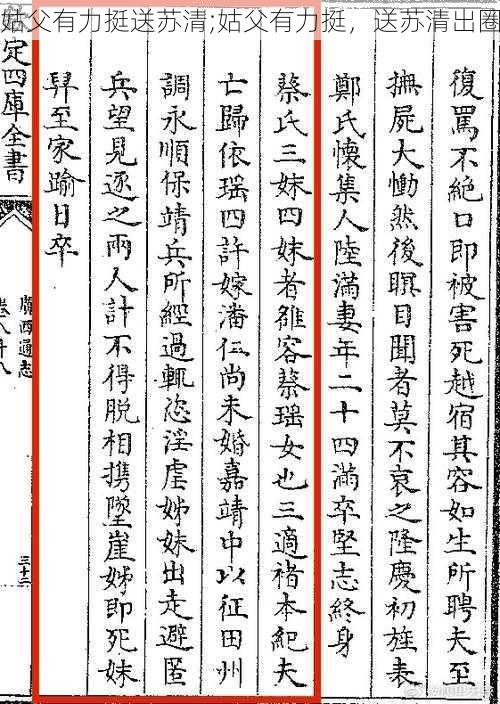 姑父有力挺送苏清;姑父有力挺，送苏清出圈
復罵不絶口即被害死越宿其容如生所聘夫至
撫屍大慟然後瞑目聞者莫不哀之隆慶初旌表
鄭氏懷集人陸滿妻年二十四滿卒堅志終身
蔡氏三妹四妹者雒容蔡瑶女也三適禇本紀夫
亡歸依瑶四許嫁潘仁尚未婚嘉靖中以征田州
調永順保靖兵所經過輒恣淫虐姊妹出走避匿
兵望見逐之兩人計不得脱相携墜崖姊即死妹
舁至家踰日卒
定四庫全書
廣西通志
卷八十八
三十二